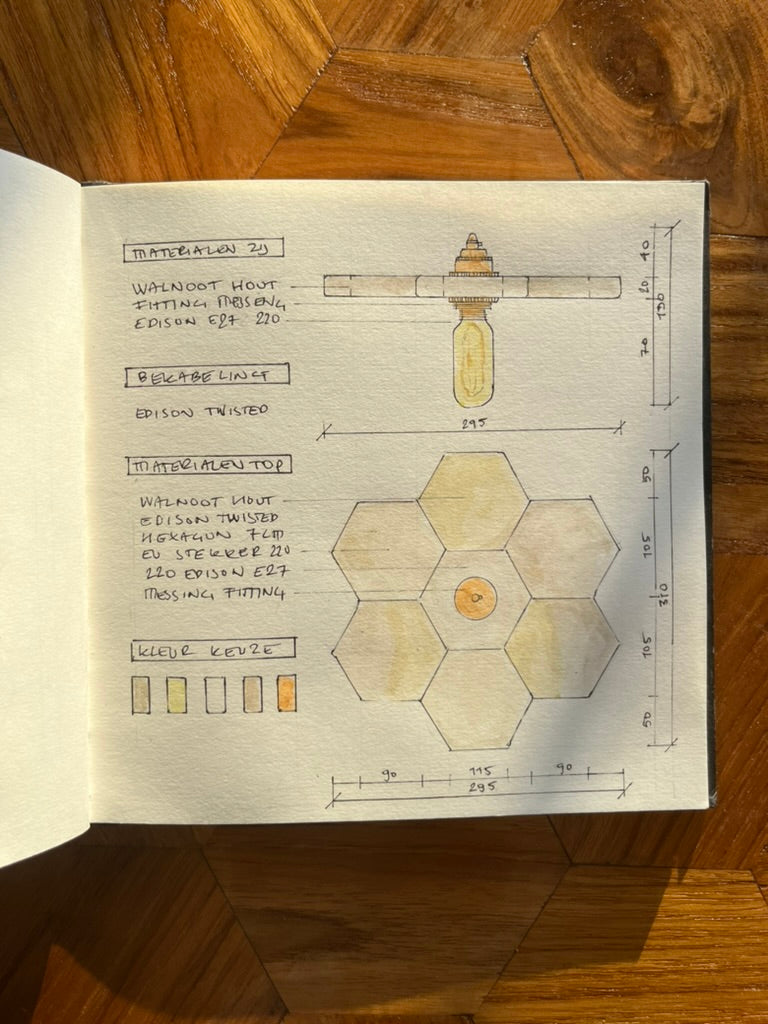 MATERIALEN ZIJ
WALNOOT HOUT
FITTING MESSENG
EDISON E27 220
BEKABELING
EDISON TWISTED
MATERIALEN TOP
WALNOOT HOUT
EDISON TWISTED
HEXAGON 7CM
EU STEKKER 220
220 EDISON E27
MESSING FITTING
KLEUR KEUZE
40
20
70
130
295
50
105
105
50
310
90
115
90
295